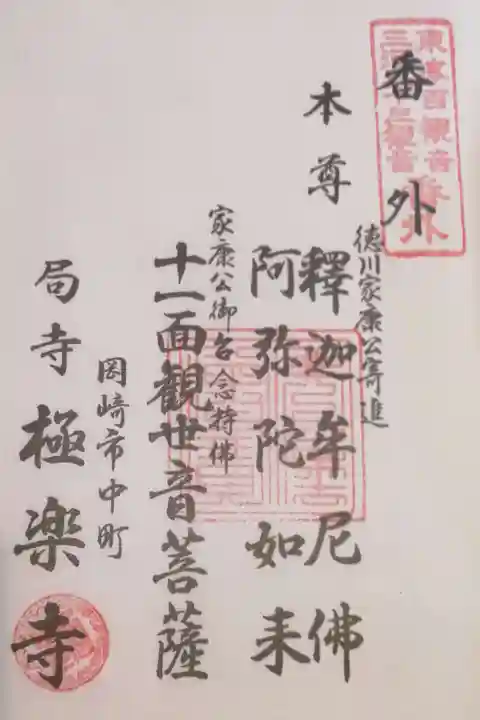 番外
徳川家康公寄進
本尊 釋迦牟尼佛
阿弥陀如来
家康公御念持佛
十一面観世音菩薩
岡崎市中町
局寺 極楽寺